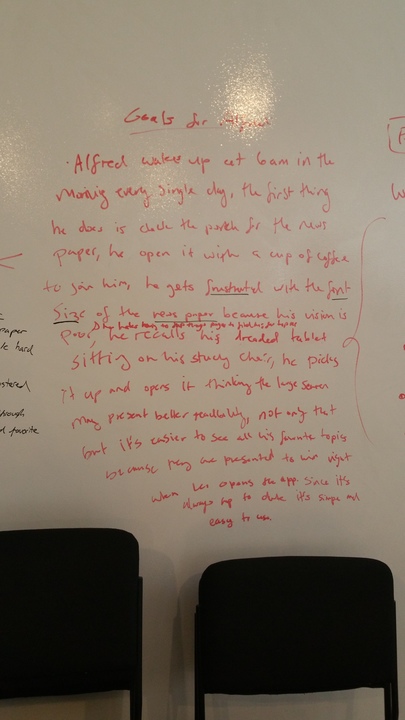 Goals for
· Alfred wakes up at 6am in the
morning every single day, the first thing
he does is check the porch for the news
paper, he open it with a cup of coffee
to join him, he gets frustrated with the font
Size of the news paper because his vision is
poor, he recalls his dreaded tablet
sitting on his study chair, he picks
it up and opens it thinking the large screen
may present better readability, not only that
but it's easier to see all his favorite topics
because they are presented to him right
when he opens the app since it's
always up to date it's simple and
easy to use
paper
hard
favorite